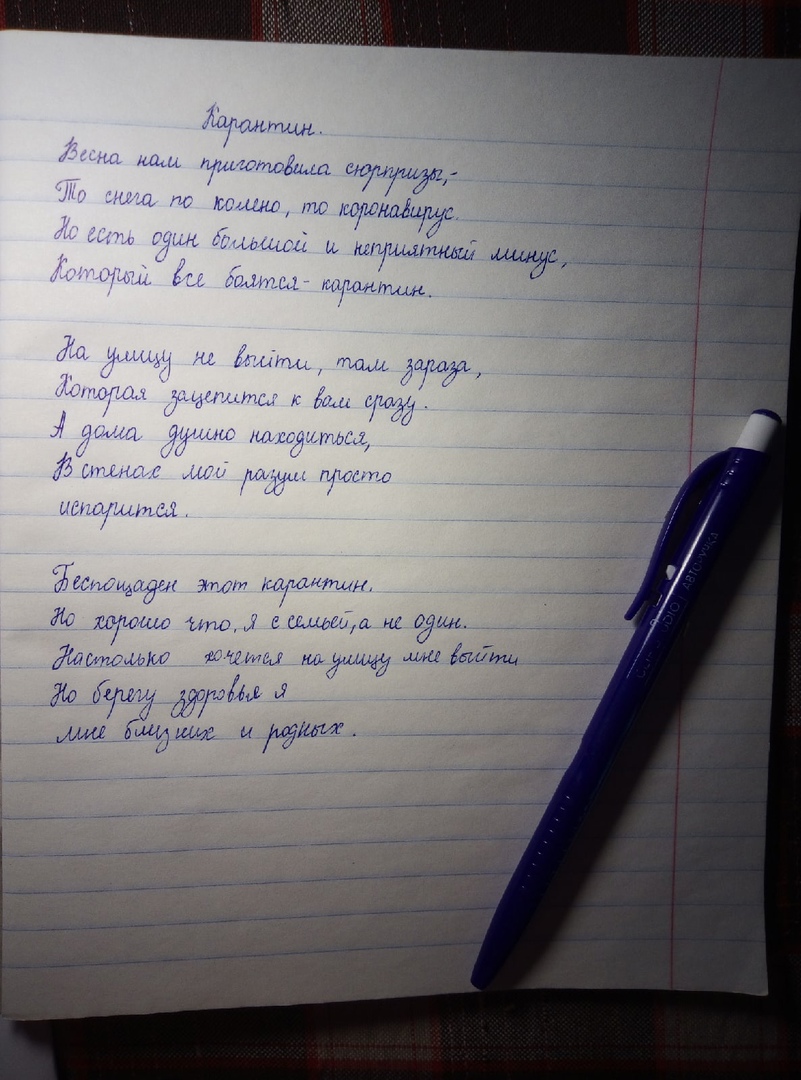 Карантин.
Весна нам приготовила сюрпризы,-
То снега по колено, то коронавирус.
Но есть один большой и неприятный минус,
Который все боятся- карантин.
На улицу не выйти, там зараза,
Которая зацепится к вам сразу.
А дома душно находиться,
В стенах мой разум просто
испарится.
Беспощаден этот карантин.
Но хорошо что, я с семьей, а не один.
Настолько хочется на улицу мне выйти
Но берегу здоровье я
мне близких и родных.
АВТОРУЧКА